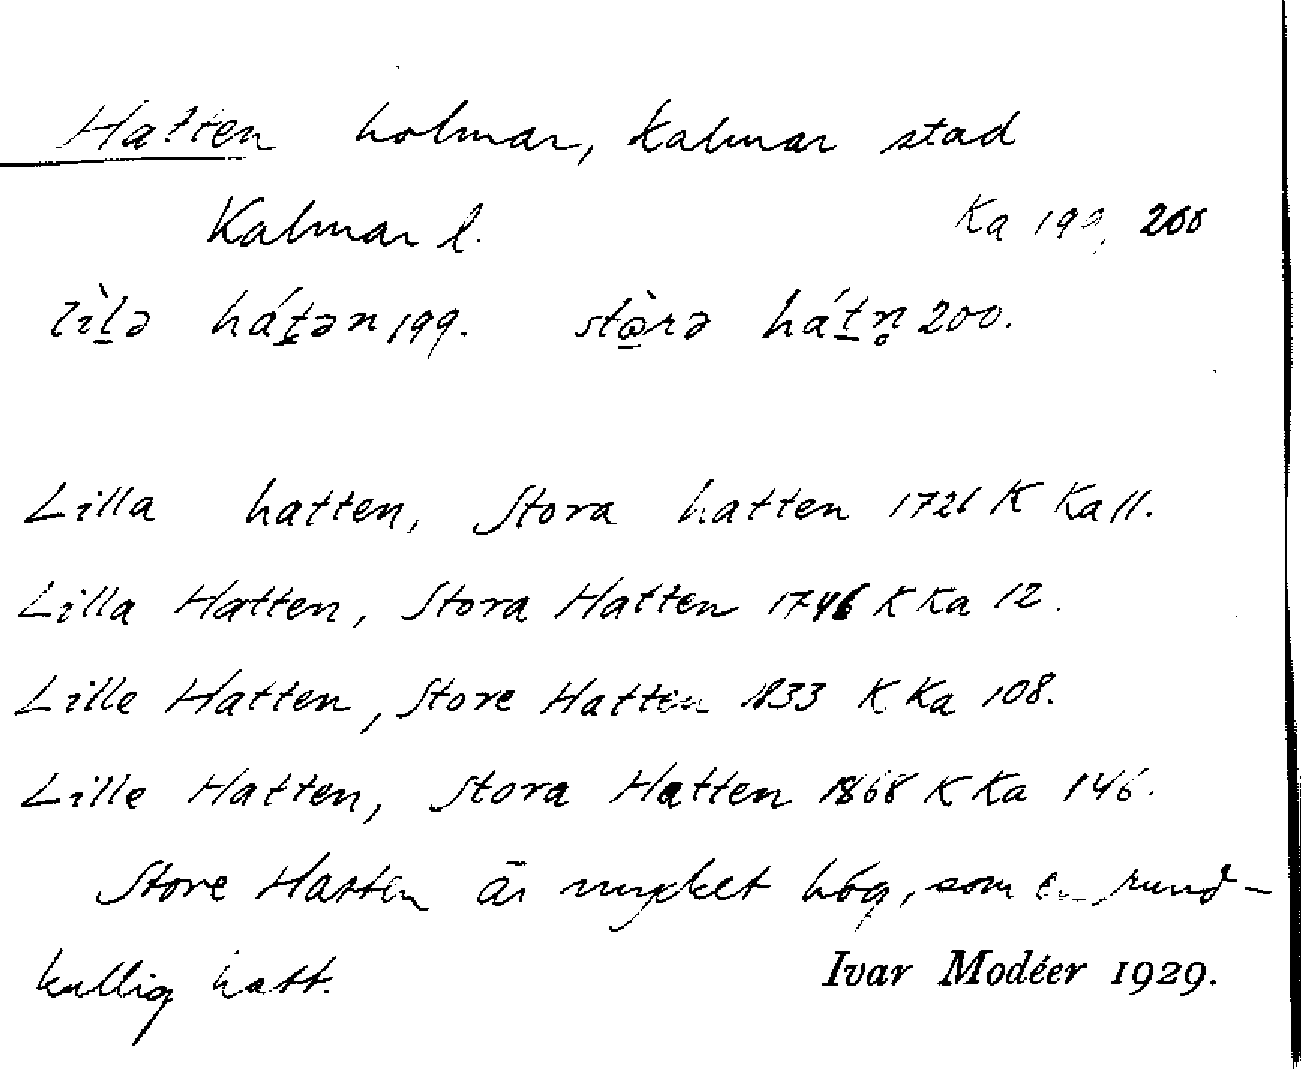 Hatten holmar, Kalmar stad
Kalmar l. Ka 199, 200
lìl̠ə hát̠ən 199. stò̠rə hát̠n̥ 200.
Lilla hatten, Stora hatten 1721 K Ka 11.
Lilla Hatten, Stora Hatten 1746 K Ka 12.
Lille Hatten, Store Hatten 1833 K Ka 108.
Lille Hatten, Stora Hatten 1868 K Ka 146.
Store Hatten är mycket hög, som en rund-
kullig hatt. Ivar Modéer 1929.